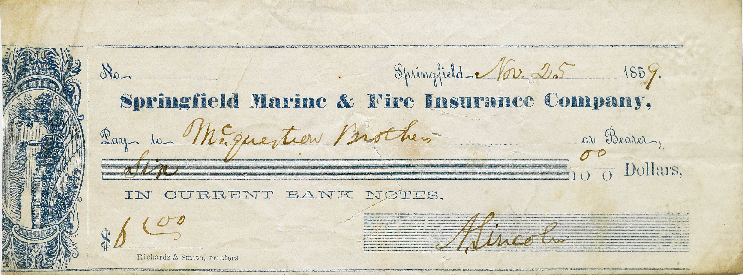 No. Springfield Nov. 25 1859.
Springfield Marine & Fire Insurance Company,
Pay to McQuestion Brothers or Bearer,
Six 00/100 Dollars,
IN CURRENT BANK NOTES.
$6.00 A. Lincoln
Richards & Smith, Printers